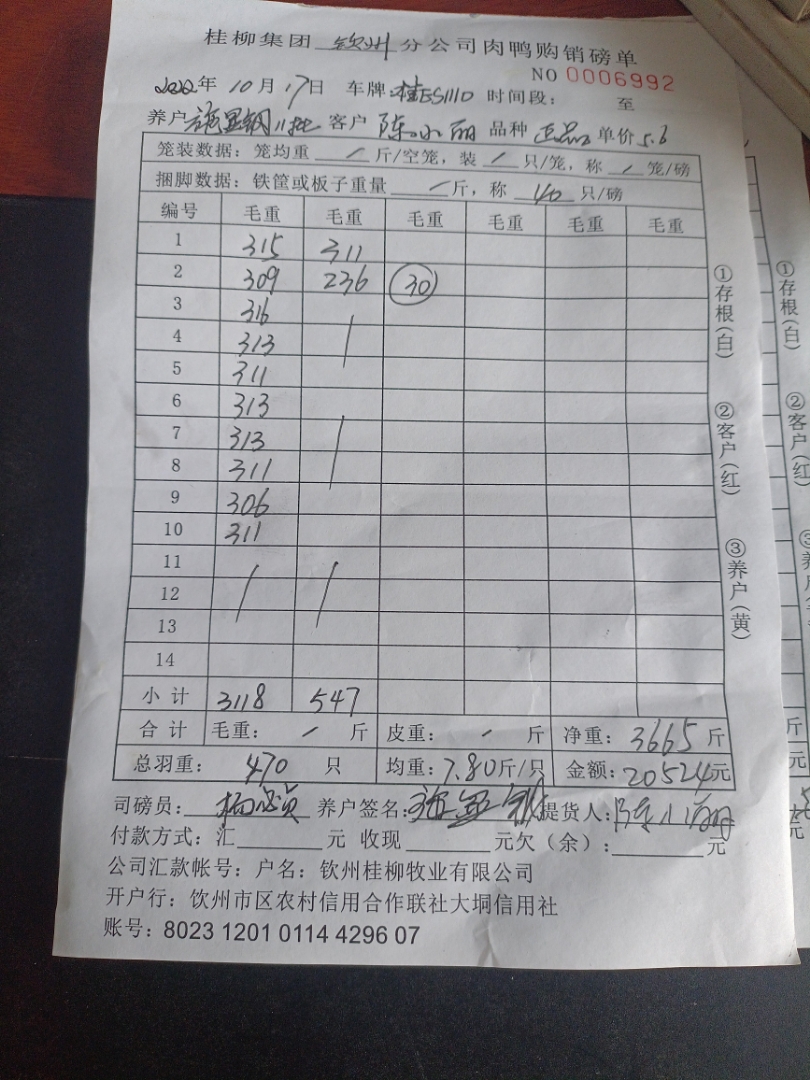 桂柳集团 钦州 分公司肉鸭购销磅单
NO 0006992
2022年 10月17日 车牌:桂ES1110 时间段: 至
养户 施显钢11批 客户 陈小丽 品种 正品 单价5.6
笼装数据: 笼均重 / 斤/空笼, 装 / 只/笼, 称 / 笼/磅
捆脚数据: 铁筐或板子重量 / 斤, 称 40 只/磅
编号 毛重 毛重 毛重 毛重 毛重 毛重
1 315 311
2 309 236 30
3 316
4 313
5 311
6 313
7 313
8 311
9 306
10 311
11
12
13
14
小计 3118 547
合计 毛重: / 斤 皮重: / 斤 净重: 3665 斤
总羽重: 470 只 均重: 7.80斤/只 金额: 20524元
司磅员: 养户签名: 施显钢 提货人: 陈小丽
付款方式: 汇 元 收现 元欠(余): 元
公司汇款帐号: 户名: 钦州桂柳牧业有限公司
开户行: 钦州市区农村信用合作联社大垌信用社
账号: 8023 1201 0114 4296 07
①存根(白)
②客户(红)
③养户(黄)
①存根(白)
②客户(红)
③养
斤
元
元